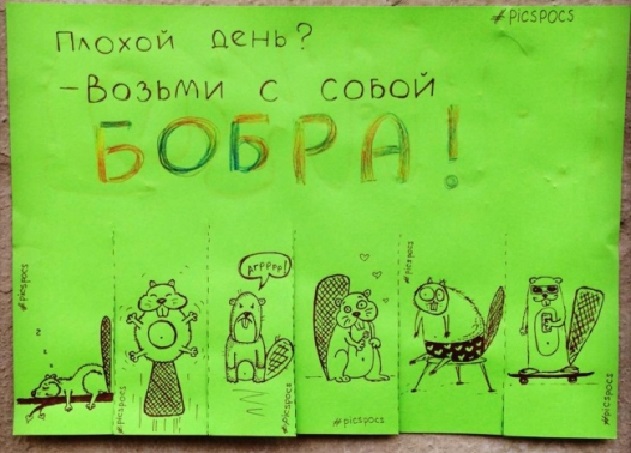 #PICSPOCS
Плохой день?
-Возьми с собой
БОБРА!
#picspocs
#picspocs
Arrrrr!
#picspocs
#picspocs
#picspocs
#picspocs